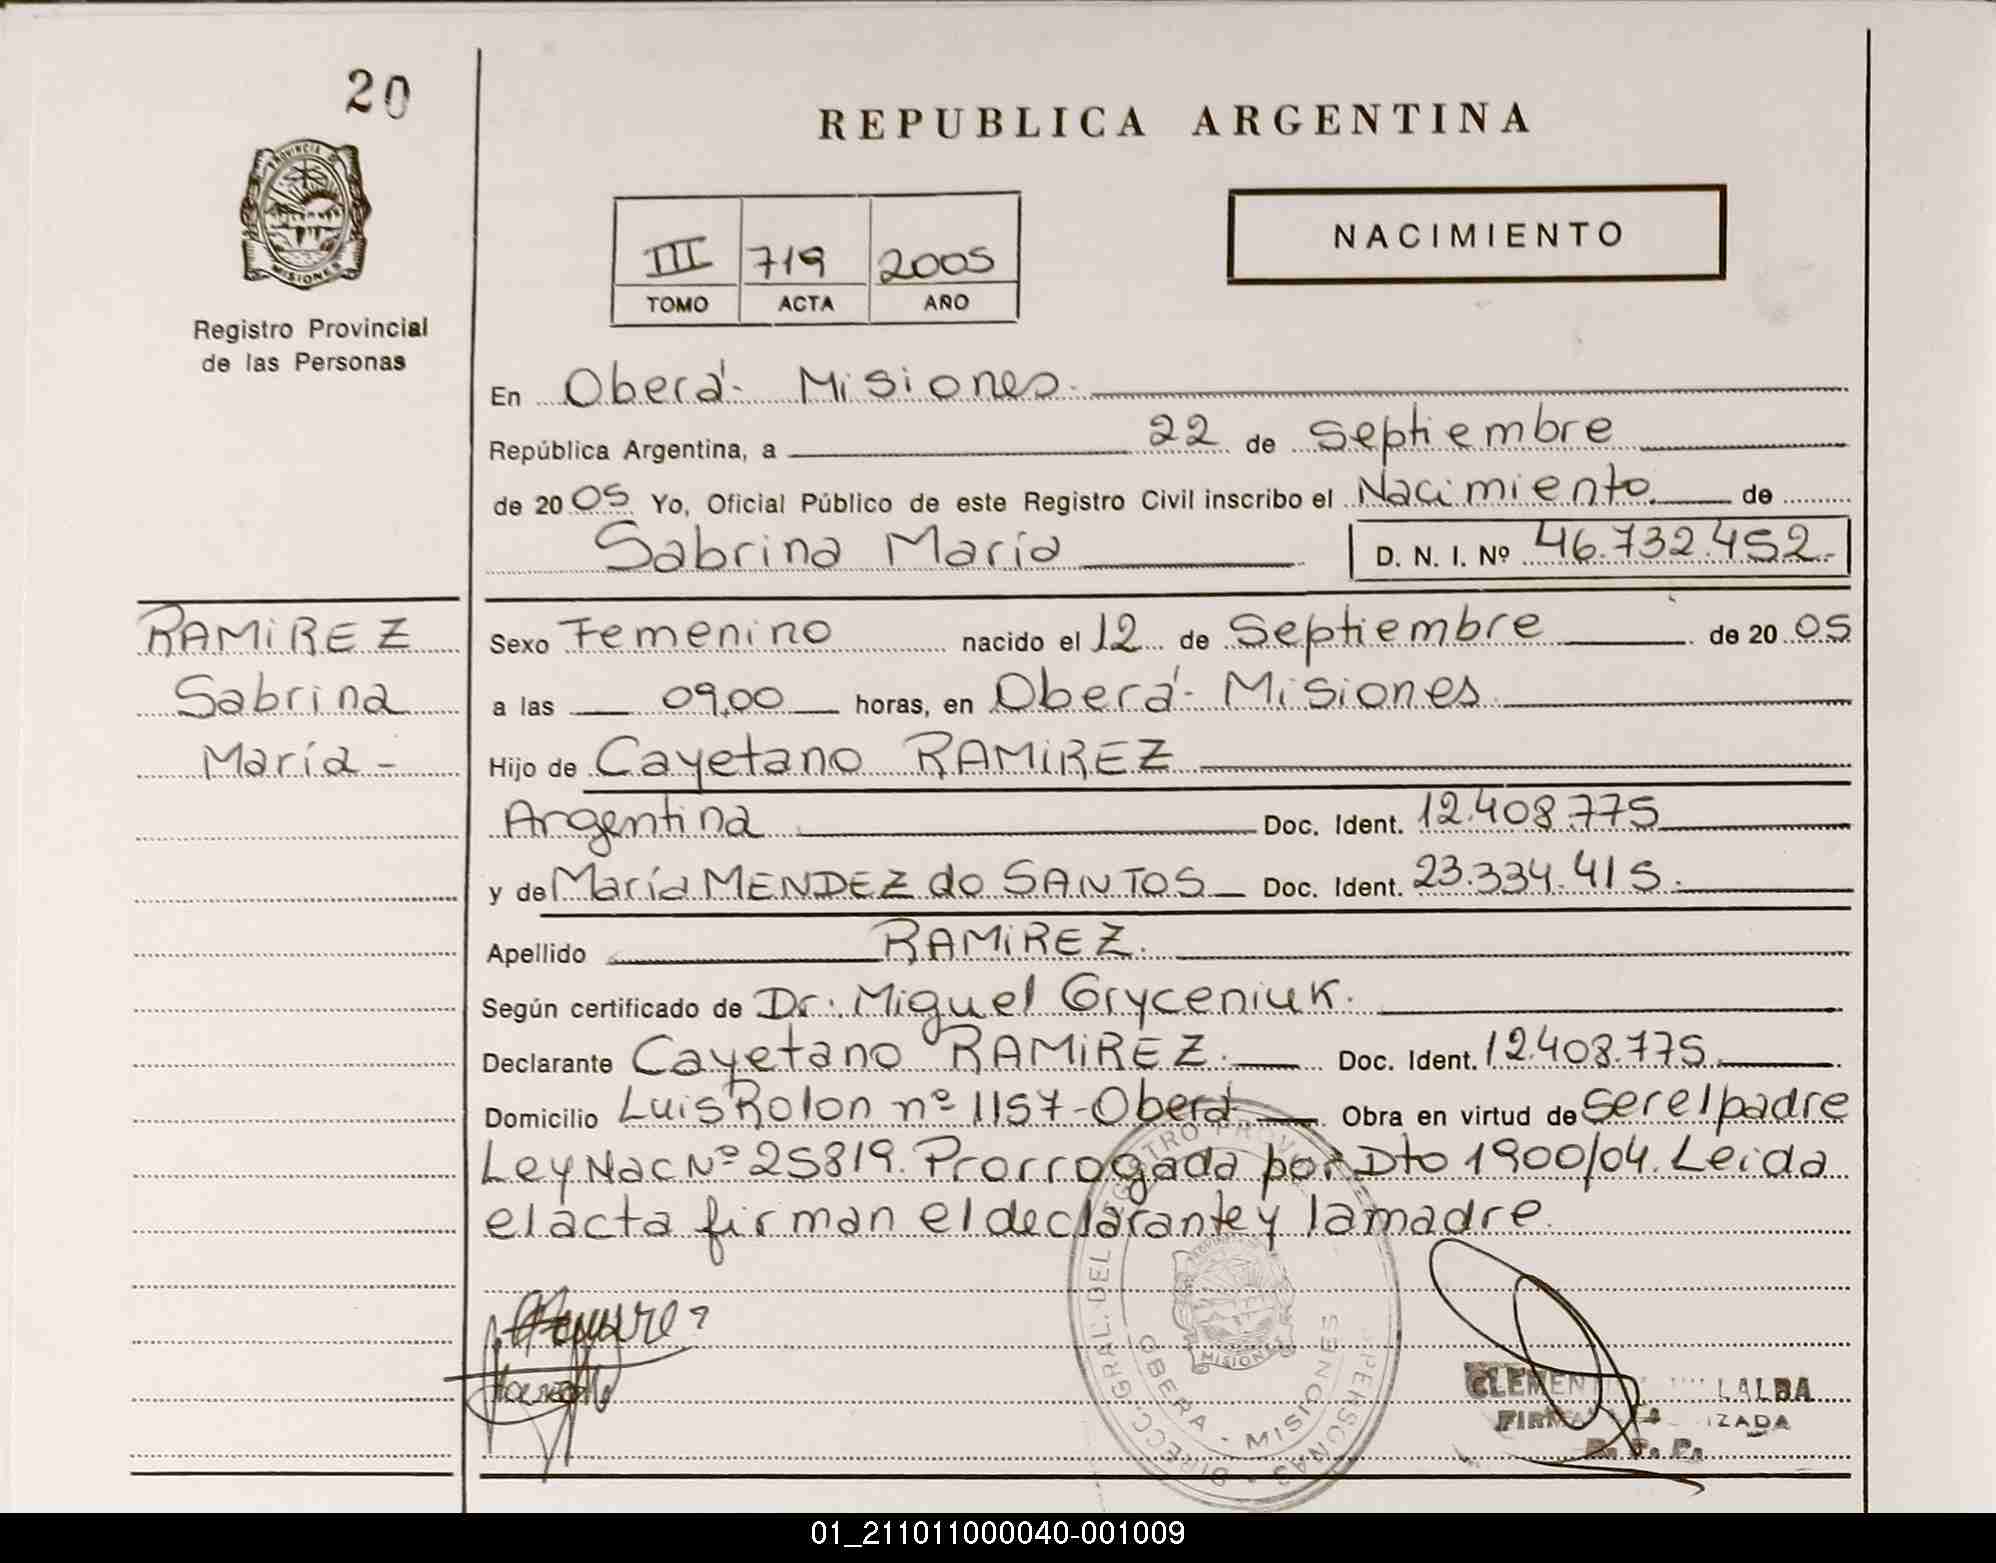 20
PROVINCIA DE
MISIONES
Registro Provincial
de las Personas
REPUBLICA ARGENTINA
III 719 2005
TOMO ACTA AÑO
NACIMIENTO
En Oberá- Misiones.
República Argentina, a 22 de Septiembre
de 20 05 Yo, Oficial Público de este Registro Civil inscribo el Nacimiento de
Sabrina María D. N. I. Nº 46.732.452.-
RAMIREZ
Sabrina
María -
Sexo Femenino nacido el 12 de Septiembre de 20 05
a las 09,00 horas, en Oberá- Misiones.
Hijo de Cayetano RAMIREZ
Argentina Doc. Ident. 12.408.775
y de María MENDEZ do SANTOS Doc. Ident. 23.334.415.
Apellido RAMIREZ.
Según certificado de Dr. Miguel Gryceniuk.
Declarante Cayetano RAMIREZ. Doc. Ident. 12.408.775
Domicilio Luis Rolon nº 1157-Oberá Obra en virtud de ser el padre
Ley Nac Nº 25819. Prorrogada por Dto 1900/04. Leida
el acta firman el declarante y la madre.
DIRECC. GRAL. DEL REGISTRO PERSONAS
MISIONES
OBERA - MISIONES
LALBA
IZADA
01_211011000040-001009